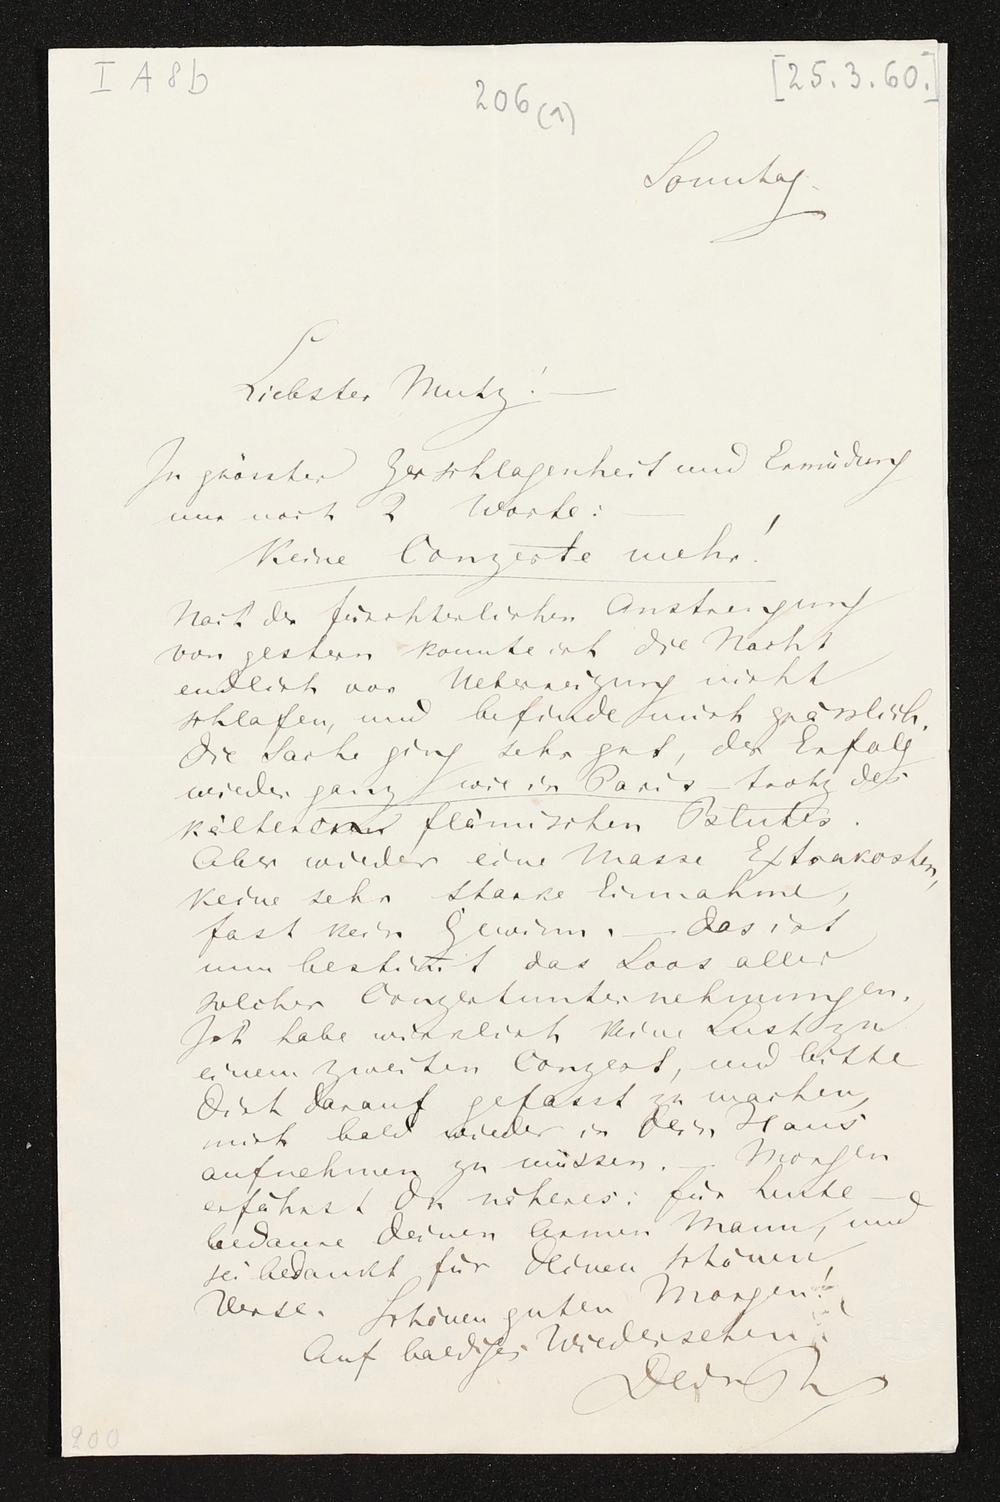 I A 8 b
206 (1)
[25.3.60.]
Sonntag.
Liebster Mutz! —
In grösster Zerschlagenheit und Ermüdung
nur noch 2 Worte: —
Keine Conzerte mehr!
Nach der fürchterlichen Anstrengung
von gestern konnte ich die Nacht
endlich vor Ueberreizung nicht
schlafen, und befinde mich grässlich.
Die Sache ging sehr gut, der Erfolg
wieder ganz wie in Paris trotz des
kälteren flämischen Blutes.
Aber wieder eine Masse Extrakosten,
keine sehr starke Einnahme,
fast kein Gewinn. — Das ist
nun bestimmt das Loos aller
solcher Conzertunternehmungen.
Ich habe wirklich keine Lust zu
einem zweiten Conzert, und bitte
Dich darauf gefasst zu machen,
mich bald wieder in Dein Haus
aufnehmen zu müssen. — Morgen
erfährst Du näheres: für heute —
bedaure Deinen armen Mann, und
sei bedankt für Deinen schönen
Verse. Schönen guten Morgen!
Auf baldiges Wiedersehen!
Dein R
200